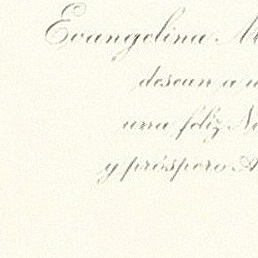 Evangelina
desean a
una feliz
y próspero